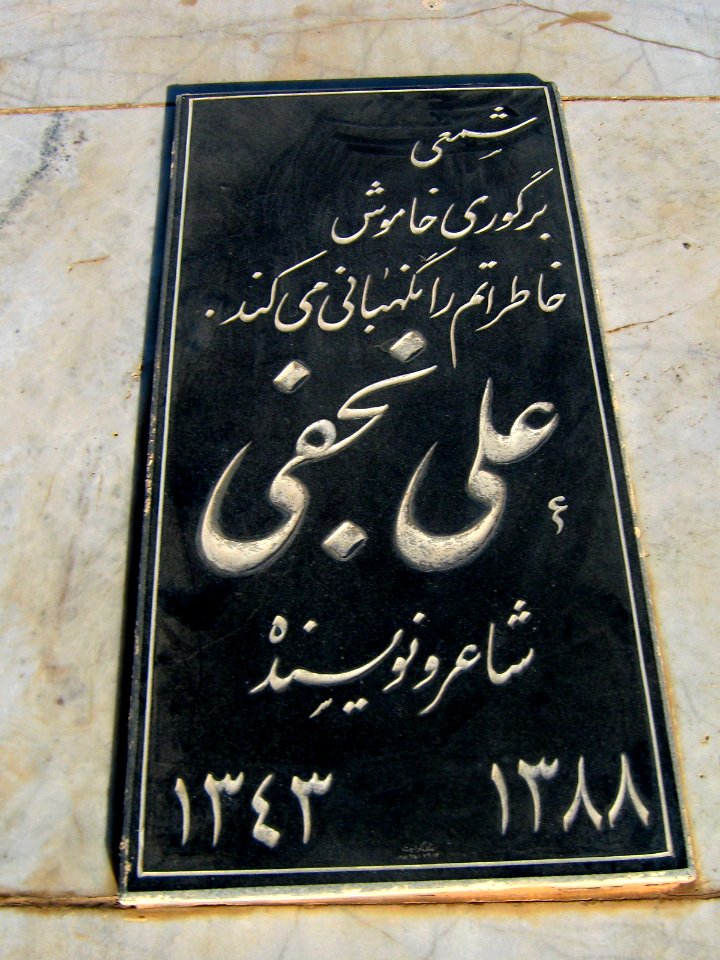 شمعی
بر گوری خاموش
خاطراتم را نگهبانی می کند.
علی نجفی
شاعر و نویسنده
۱۳۴۳ ۱۳۸۸